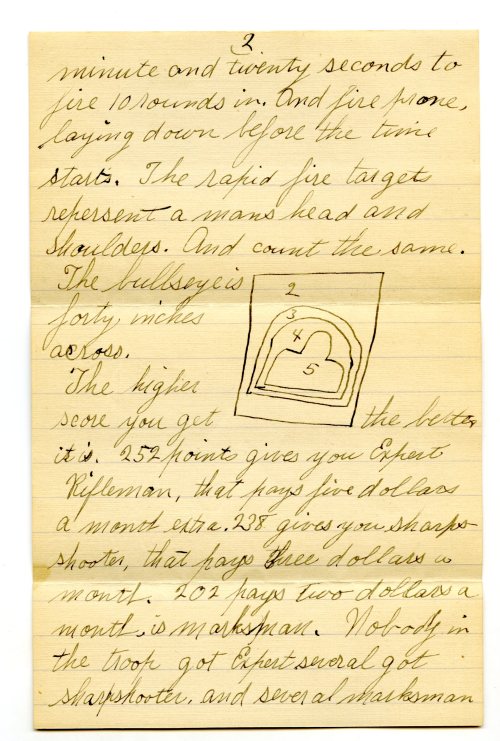 2
minute and twenty seconds to
fire 10 rounds in. And fire prone,
laying down before the time
starts. The rapid fire targets
repersent a mans head and
shoulders. And count the same.
The bullseye is
forty inches
across.
2
3
4
5
The higher
score you get the better
it is. 252 points gives you Expert
Rifleman, that pays five dollars
a month extra. 238 gives you sharp-
shooter, that pays three dollars a
month. 202 pays two dollars a
month, is marksman. Nobody in
the troop got Expert several got
sharpshooter. and several marksman